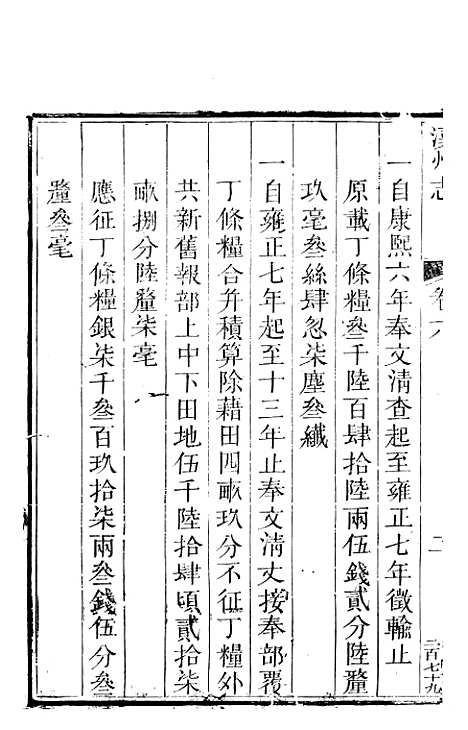 漢州志
卷六
二
二百七十九
一自康熙六年奉文清查起至雍正七年徵輸止
原載丁條糧叄千陸百肆拾陸兩伍錢貳分陸釐
玖毫叄絲肆忽柒塵叄纖
一自雍正七年起至十三年止奉文清丈接奉部覆
丁條糧合并積算除藉田四畝玖分不征丁糧外
共新舊報部上中下田地伍千陸拾肆頃貳拾柒
畝捌分陸釐柒毫
應征丁條糧銀柒千叄百玖拾柒兩叄錢伍分叄
釐叄毫